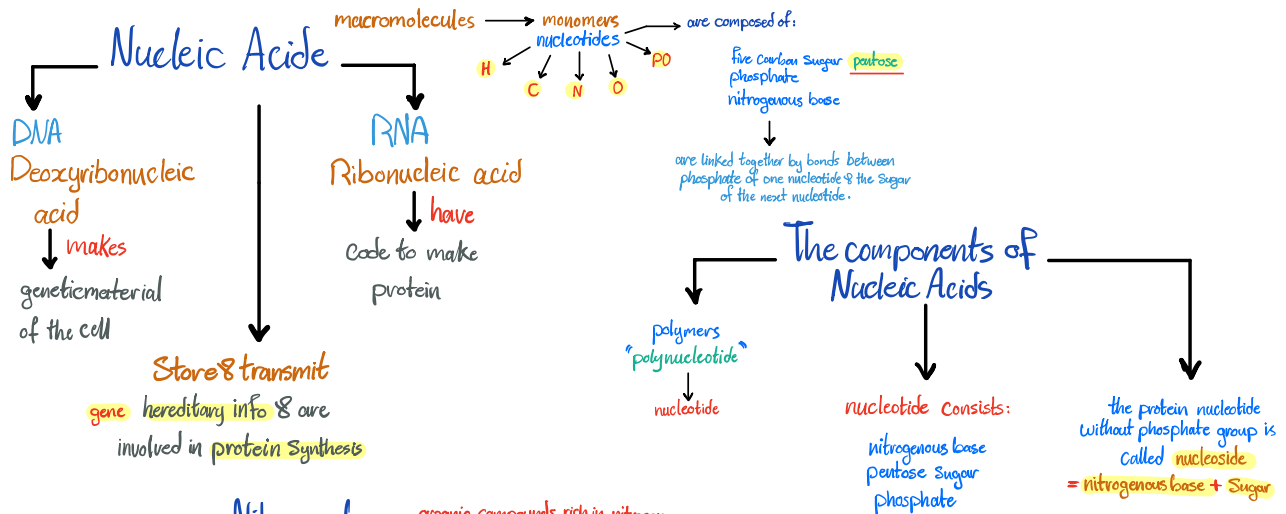 macromolecules
monomers
nucleotides
H
C
N
O
PO
are composed of:
five carbon sugar pentose
phosphate
nitrogenous base
are linked together by bonds between
phosphate of one nucleotide & the sugar
of the next nucleotide.
Nucleic Acide
DNA
Deoxyribonucleic
acid
makes
genetic material
of the cell
RNA
Ribonucleic acid
have
code to make
protein
Store & transmit
gene hereditary info & are
involved in protein Synthesis
The components of
Nucleic Acids
polymers
"polynucleotide"
nucleotide
nucleotide consists:
nitrogenous base
pentose sugar
phosphate
the protein nucleotide
without phosphate group is
called nucleoside
= nitrogenous base + Sugar
organic compounds rich in